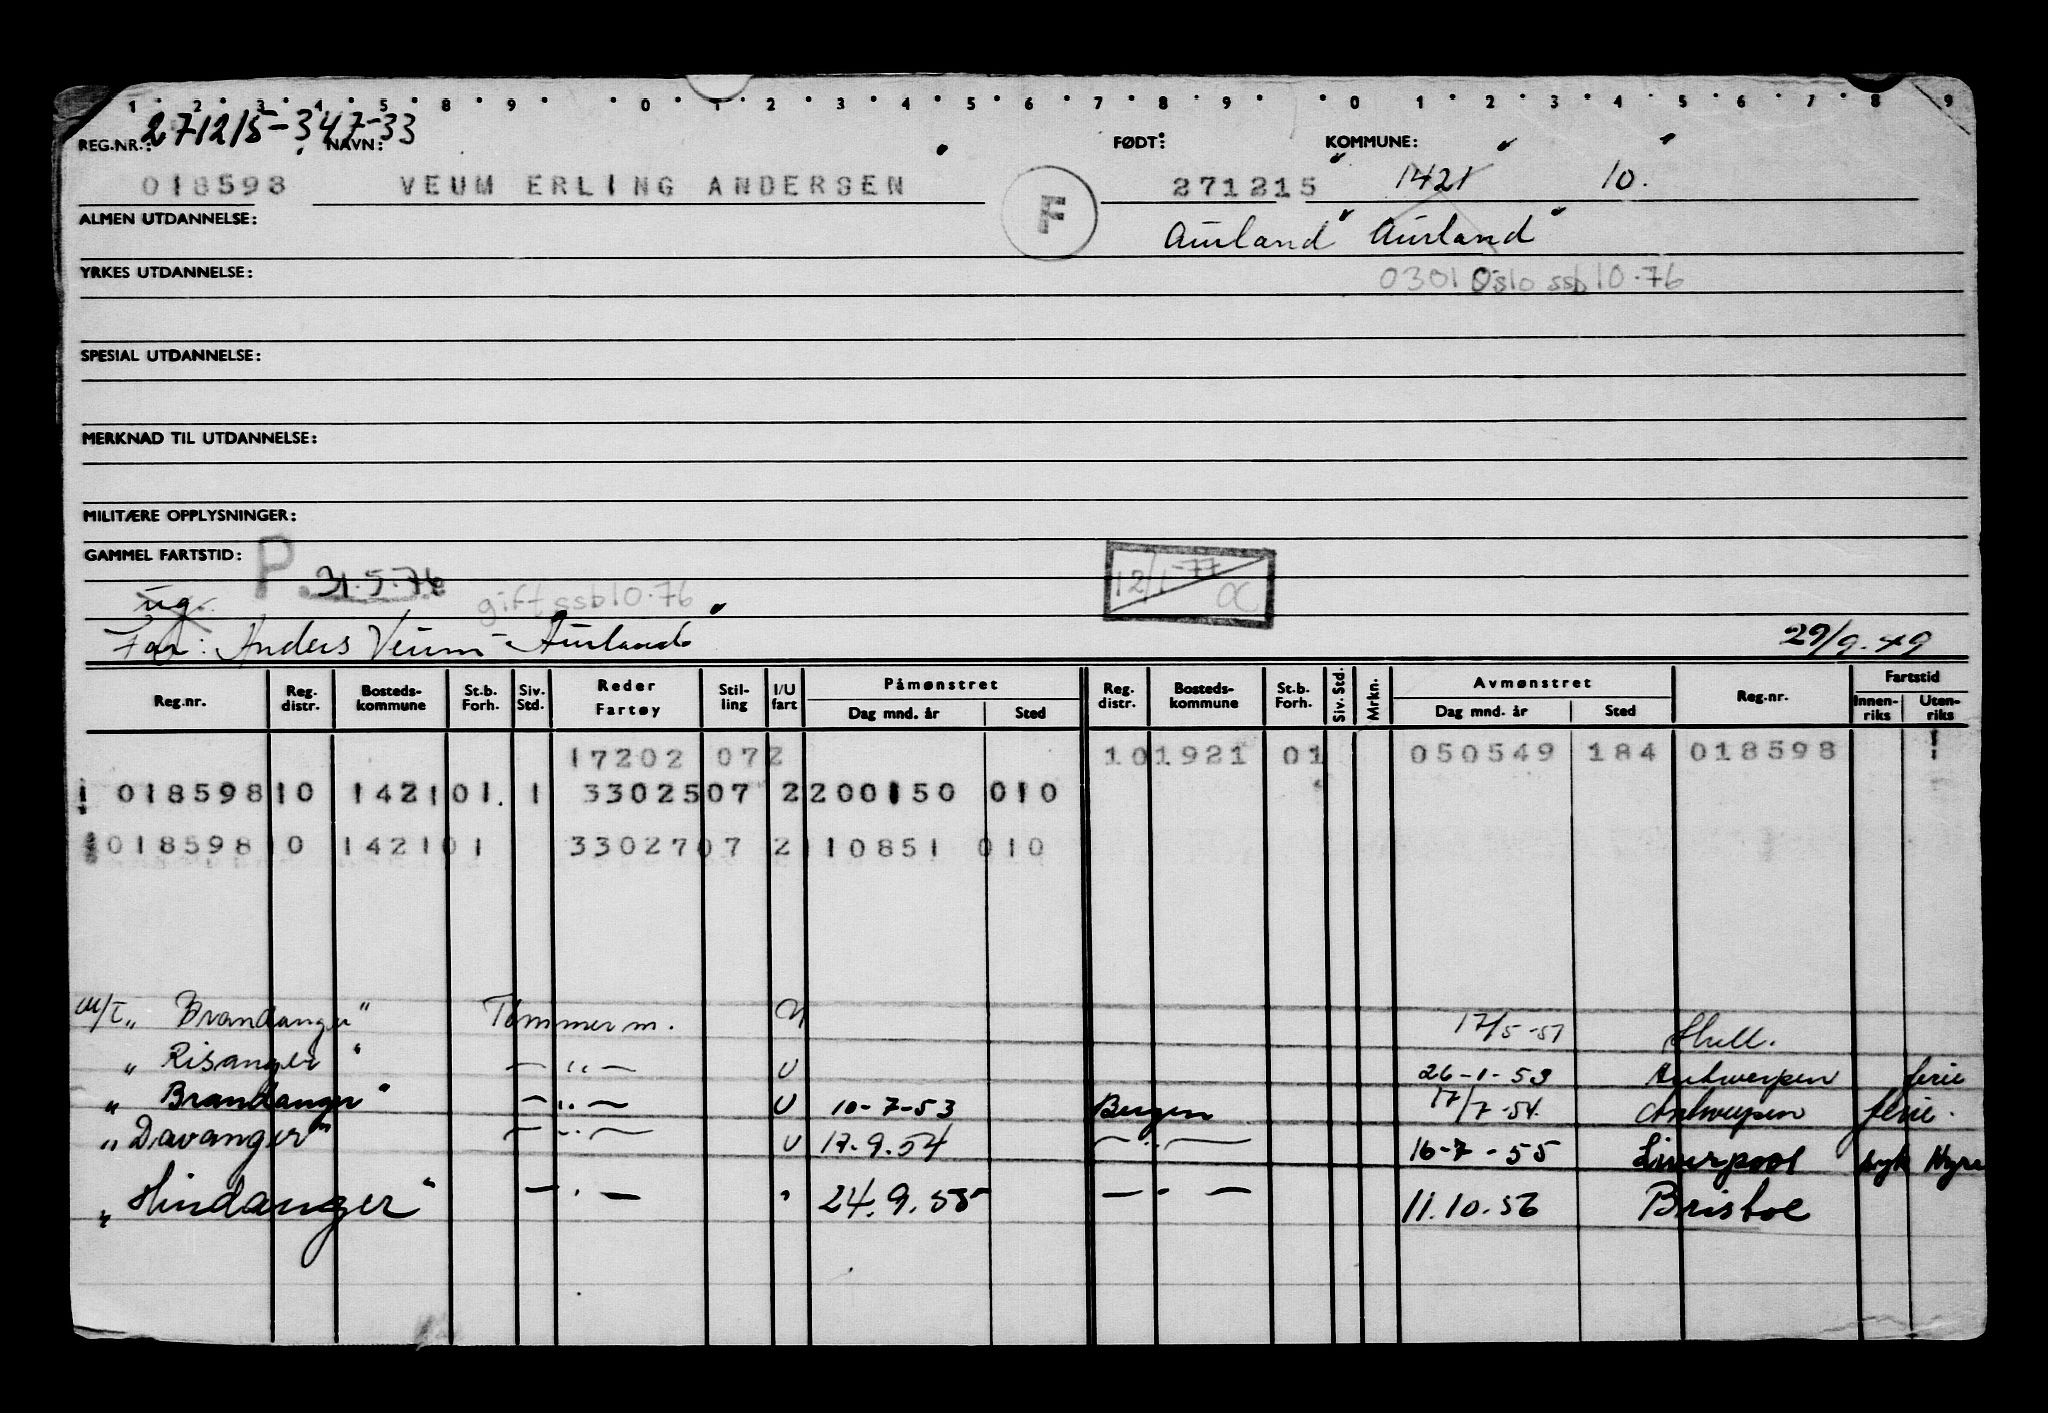 1 2 3 4 5 8 9 0 1 2 3 4 5 6 7 8 9 0 1 2 3 4 5 6 7 8 9
REG.NR.: 271215-347-33 NAVN: FØDT: KOMMUNE:
018598 VEUM ERLING ANDERSEN F 271215 1421 10.
ALMEN UTDANNELSE: Aurland Aurland
YRKES UTDANNELSE: 0301 Oslo ssb 10.76
SPESIAL UTDANNELSE:
MERKNAD TIL UTDANNELSE:
MILITÆRE OPPLYSNINGER:
GAMMEL FARTSTID: P 31.5.76 12/1-77
ug. gift ssb 10.76
Far: Anders Veum - Aurland 29/9.49
Reg.nr. Reg. distr. Bosteds-kommune St.b. Forh. Siv. Std. Reder Fartøy Stil-ling I/U fart Påmønstret Dag mnd. år Sted Reg. distr. Bosteds-kommune St.b. Forh. Siv. Std. Mrkn. Avmønstret Dag mnd. år Sted Reg.nr. Fartstid Innen-riks Uten-riks
17202 072 101921 01 050549 184 018598 1
1 018598 10 1421 01. 1 33025 07 2 200150 010
018598 10 1421 01 33027 07 2 110851 010
M/T " Brandanger " Tømmerm. U 17/5-51 Hull.
" Risanger " — " — U 26-1-53 Antwerpen ferie
" Brandanger " — " — U 10-7-53 Bergen 17/7-54 Antwerpen ferie.
" Davanger " — " — U 17.9.54 — " — 16-7-55 Liverpool syk Hyre
" Hindanger " — " — " 24.9.55 — " — 11.10.56 Bristol